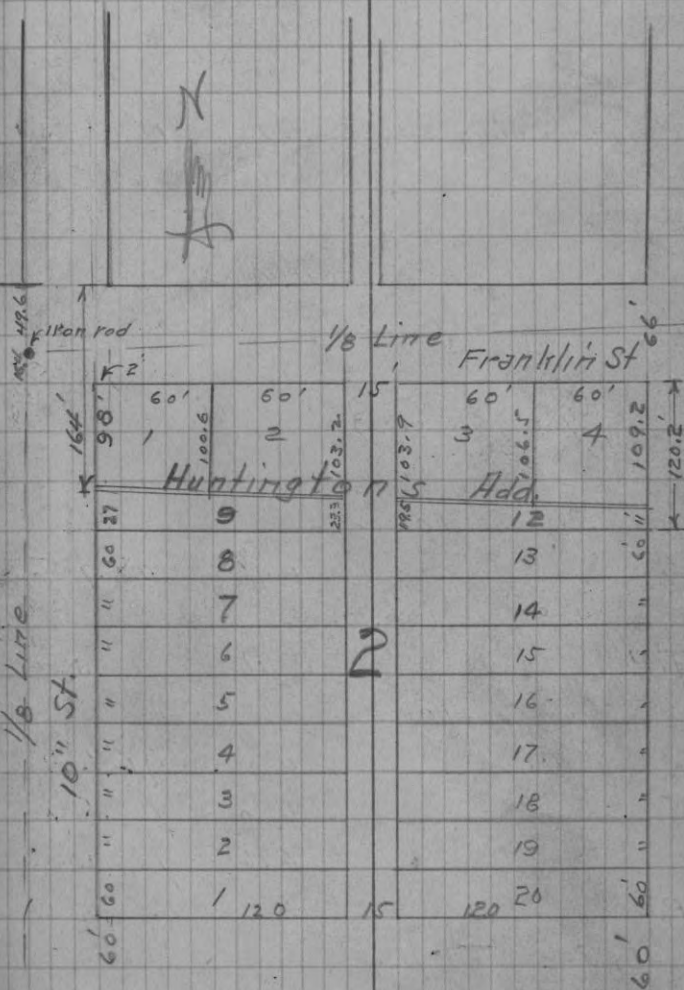 N
49.6
Iron rod
1/8 Line
66'
Franklin St
2'
164'
98'
60'
60'
15'
60'
60'
1
100.6
2
103.2
103.9
3
106.5
4
109.2
120.2'
Huntington's Add.
27
9
19.5
12
"
60
8
13
60'
"
7
14
"
"
6
15
"
2
"
5
16
"
"
4
17
"
"
3
18
"
"
2
19
"
60
1
120
15
120
20
60'
1/8 Line
10" St.
60'
60'